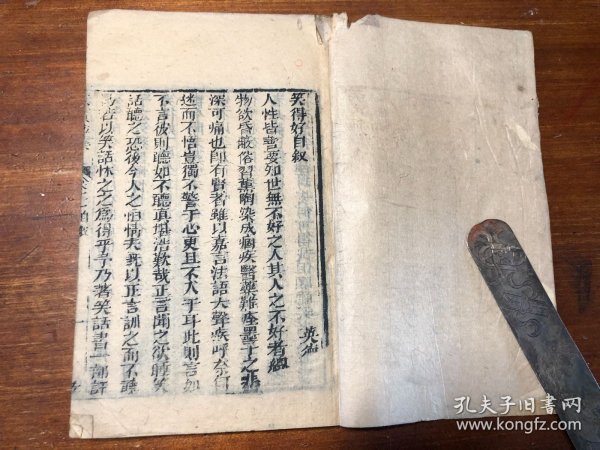 笑得好自叙
人性皆善要知世無不好之人其人之不好者緫
物欲昏蔽俗習薫陶染成痼疾醫藥難痊墨子之悲
深可痛也即有賢者雖以嘉言法語大聲疾呼奈何
迷而不悟豈獨不警于心更且不入乎耳此則言如
不言彼則聽如不聽真堪浩歎哉正言聞之欲睡笑
話聽之恐後今人之恒情夫旣以正言訓之而不聽
以笑話怵之之爲得乎予乃著笑話書一部評
孔夫子旧书网
www.kongfz.com